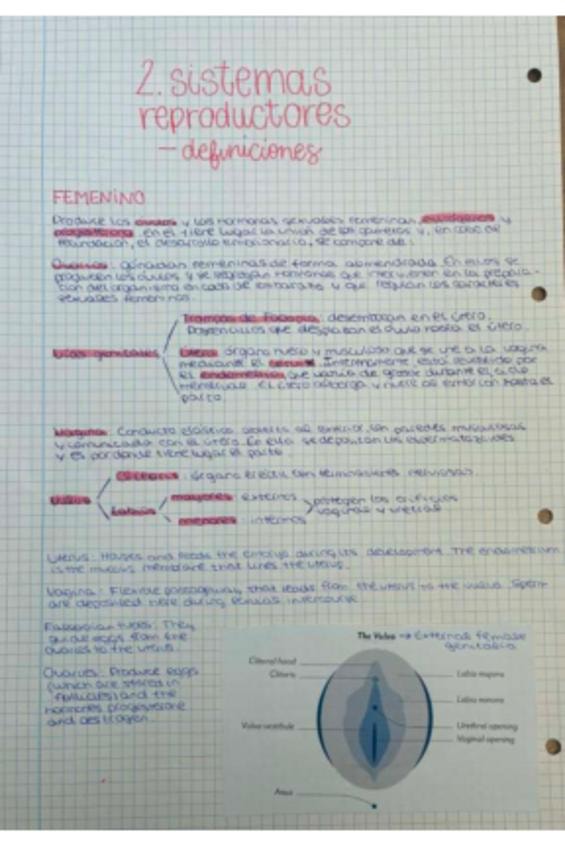 2. sistemas
reproductores
- definiciones
FEMENINO
Produce los óvulos y las hormonas sexuales femeninas, estrógenos y
progesterona. en él tiene lugar la unión de los gametos y, en caso de
fecundación, el desarrollo embrionario, se compone de:
Ovarios: gónadas femeninas de forma almendrada. En ellos se
producen los óvulos y se segregan hormonas que intervienen en la prepara-
ción del organismo en cada de embarazo y que regulan los caracteres
sexuales femeninos.
Trompas de Falopio: desembocan en el útero.
que desplazan el óvulo hasta el útero.
Vías genitales
Útero: órgano hueco y musculado que se une a la vagina
mediante el Interiormente, está revestido por
el endometrio, que varía de grosor durante el ciclo
menstrual. El útero alberga y nutre al embrión hasta el
parto.
Vagina: Conducto elástico abierto al exterior, con paredes musculosas
y comunicada con el útero. En ella se depositan los espermatozoides
y es por donde tiene lugar el parto.
Clítoris: órgano eréctil con terminaciones nerviosas.
Vulva
Labios
mayores: externos
menores: internos
protegen los orificios
vaginal y uretral
Uterus: Houses and feeds the embryo during its development. The endometrium
is the mucus membrane that lines the uterus.
Vagina: Flexible passageway that leads from the uterus to the vulva. Sperm
are deposited here during intercourse.
Fallopian tubes: They
guide eggs from the
ovaries to the uterus.
Ovaries: Produce eggs
(which are stored in
follicles) and the
hormones progesterone
and oestrogen.
The Vulva → External female
genitalia
Clitoral hood
Clitoris
Labia majora
Labia minora
Vulva vestibule
Urethral opening
Vaginal opening
Anus